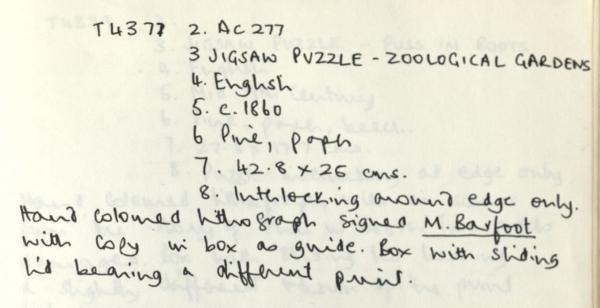 T4377 2. Ac 277
3 JIGSAW PUZZLE - ZOOLOGICAL GARDENS
4. English
5. c. 1860
6 Pine, paph
7. 42.8 x 26 cms.
8. Interlocking around edge only.
Hand coloured lithograph signed M. Barfoot
with copy in box as guide. Box with sliding
lid bearing a different print.